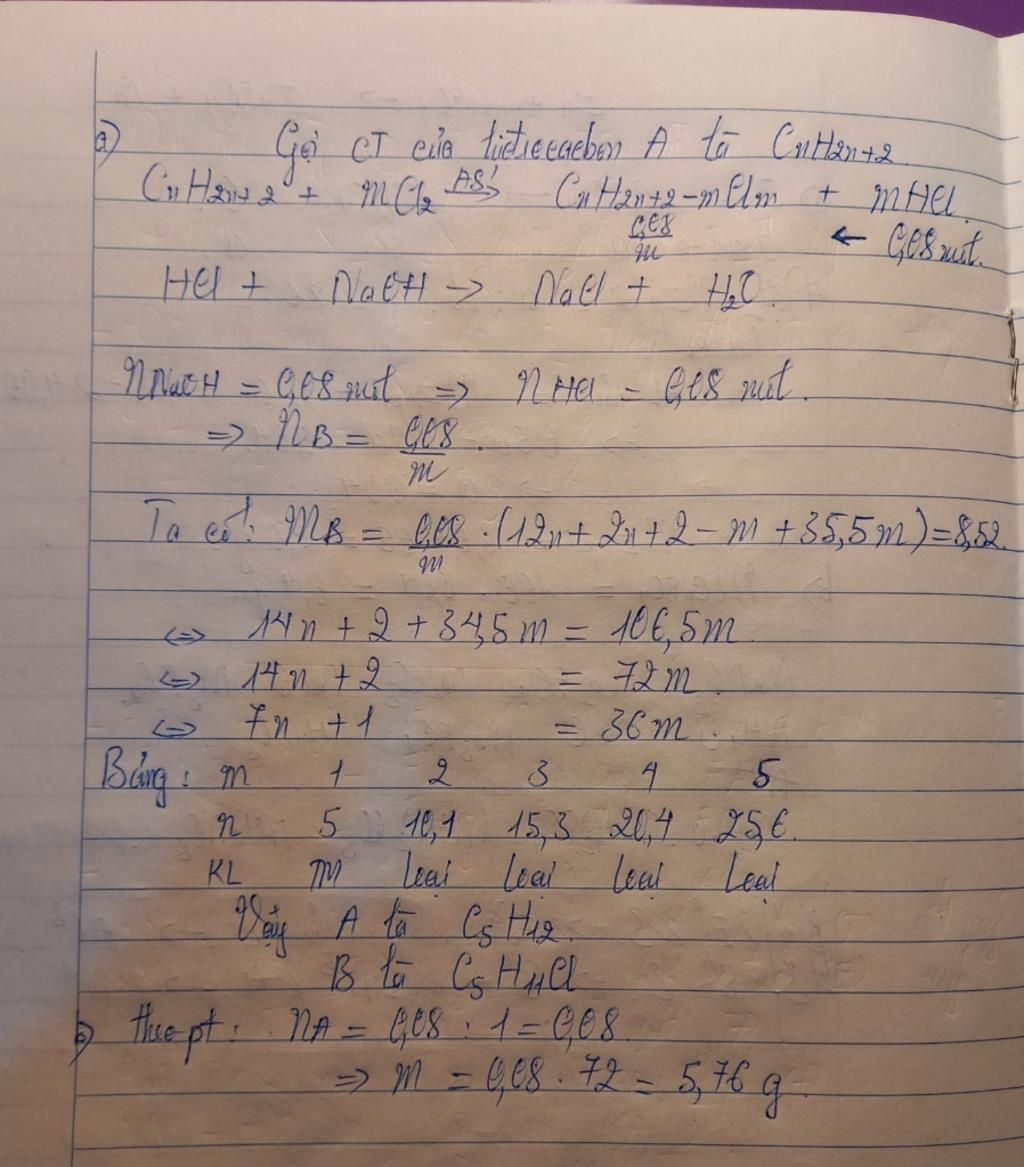 a) Gọi CT của hiđrocacbon A là CnH2n+2
CnH2n+2 + mCl2 AS→ CnH2n+2-mClm + mHCl
0,08/m ← 0,08 mol.
HCl + NaOH → NaCl + H2O
nNaOH = 0,08 mol => nHCl = 0,08 mol.
=> nB = 0,08/m.
Ta có: mB = 0,08/m . (12n + 2n + 2 - m + 35,5m) = 8,52.
<=> 14n + 2 + 34,5m = 106,5m
<=> 14n + 2 = 72m.
<=> 7n + 1 = 36m.
Bảng: m 1 2 3 4 5
n 5 10,1 15,3 20,4 25,6.
KL TM loại loại loại loại
Vậy A là C5H12.
B là C5H11Cl
b) theo pt: nA = 0,08 : 1 = 0,08
=> m = 0,08 . 72 = 5,76 g